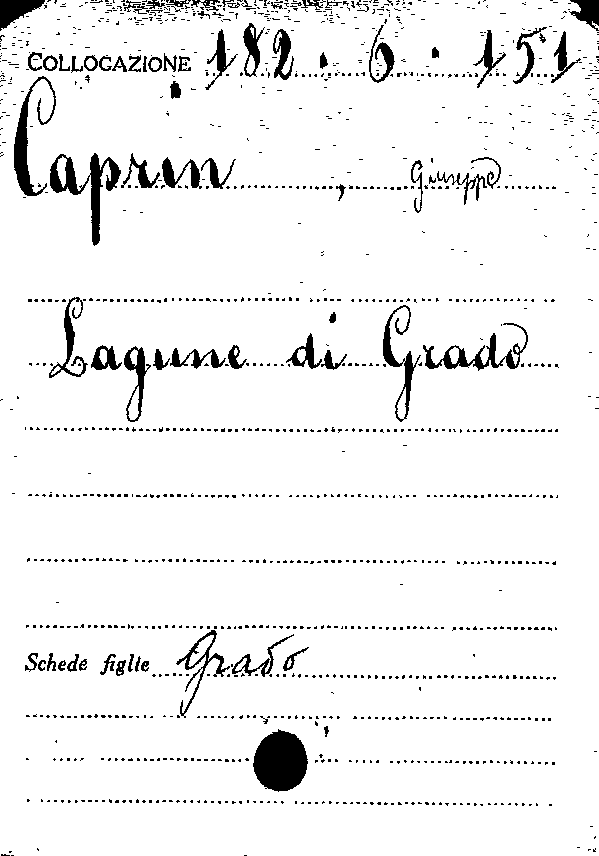 COLLOCAZIONE 182.6.151
Caprin, Giuseppe
Lagune di Grado
Schede figlie Grado